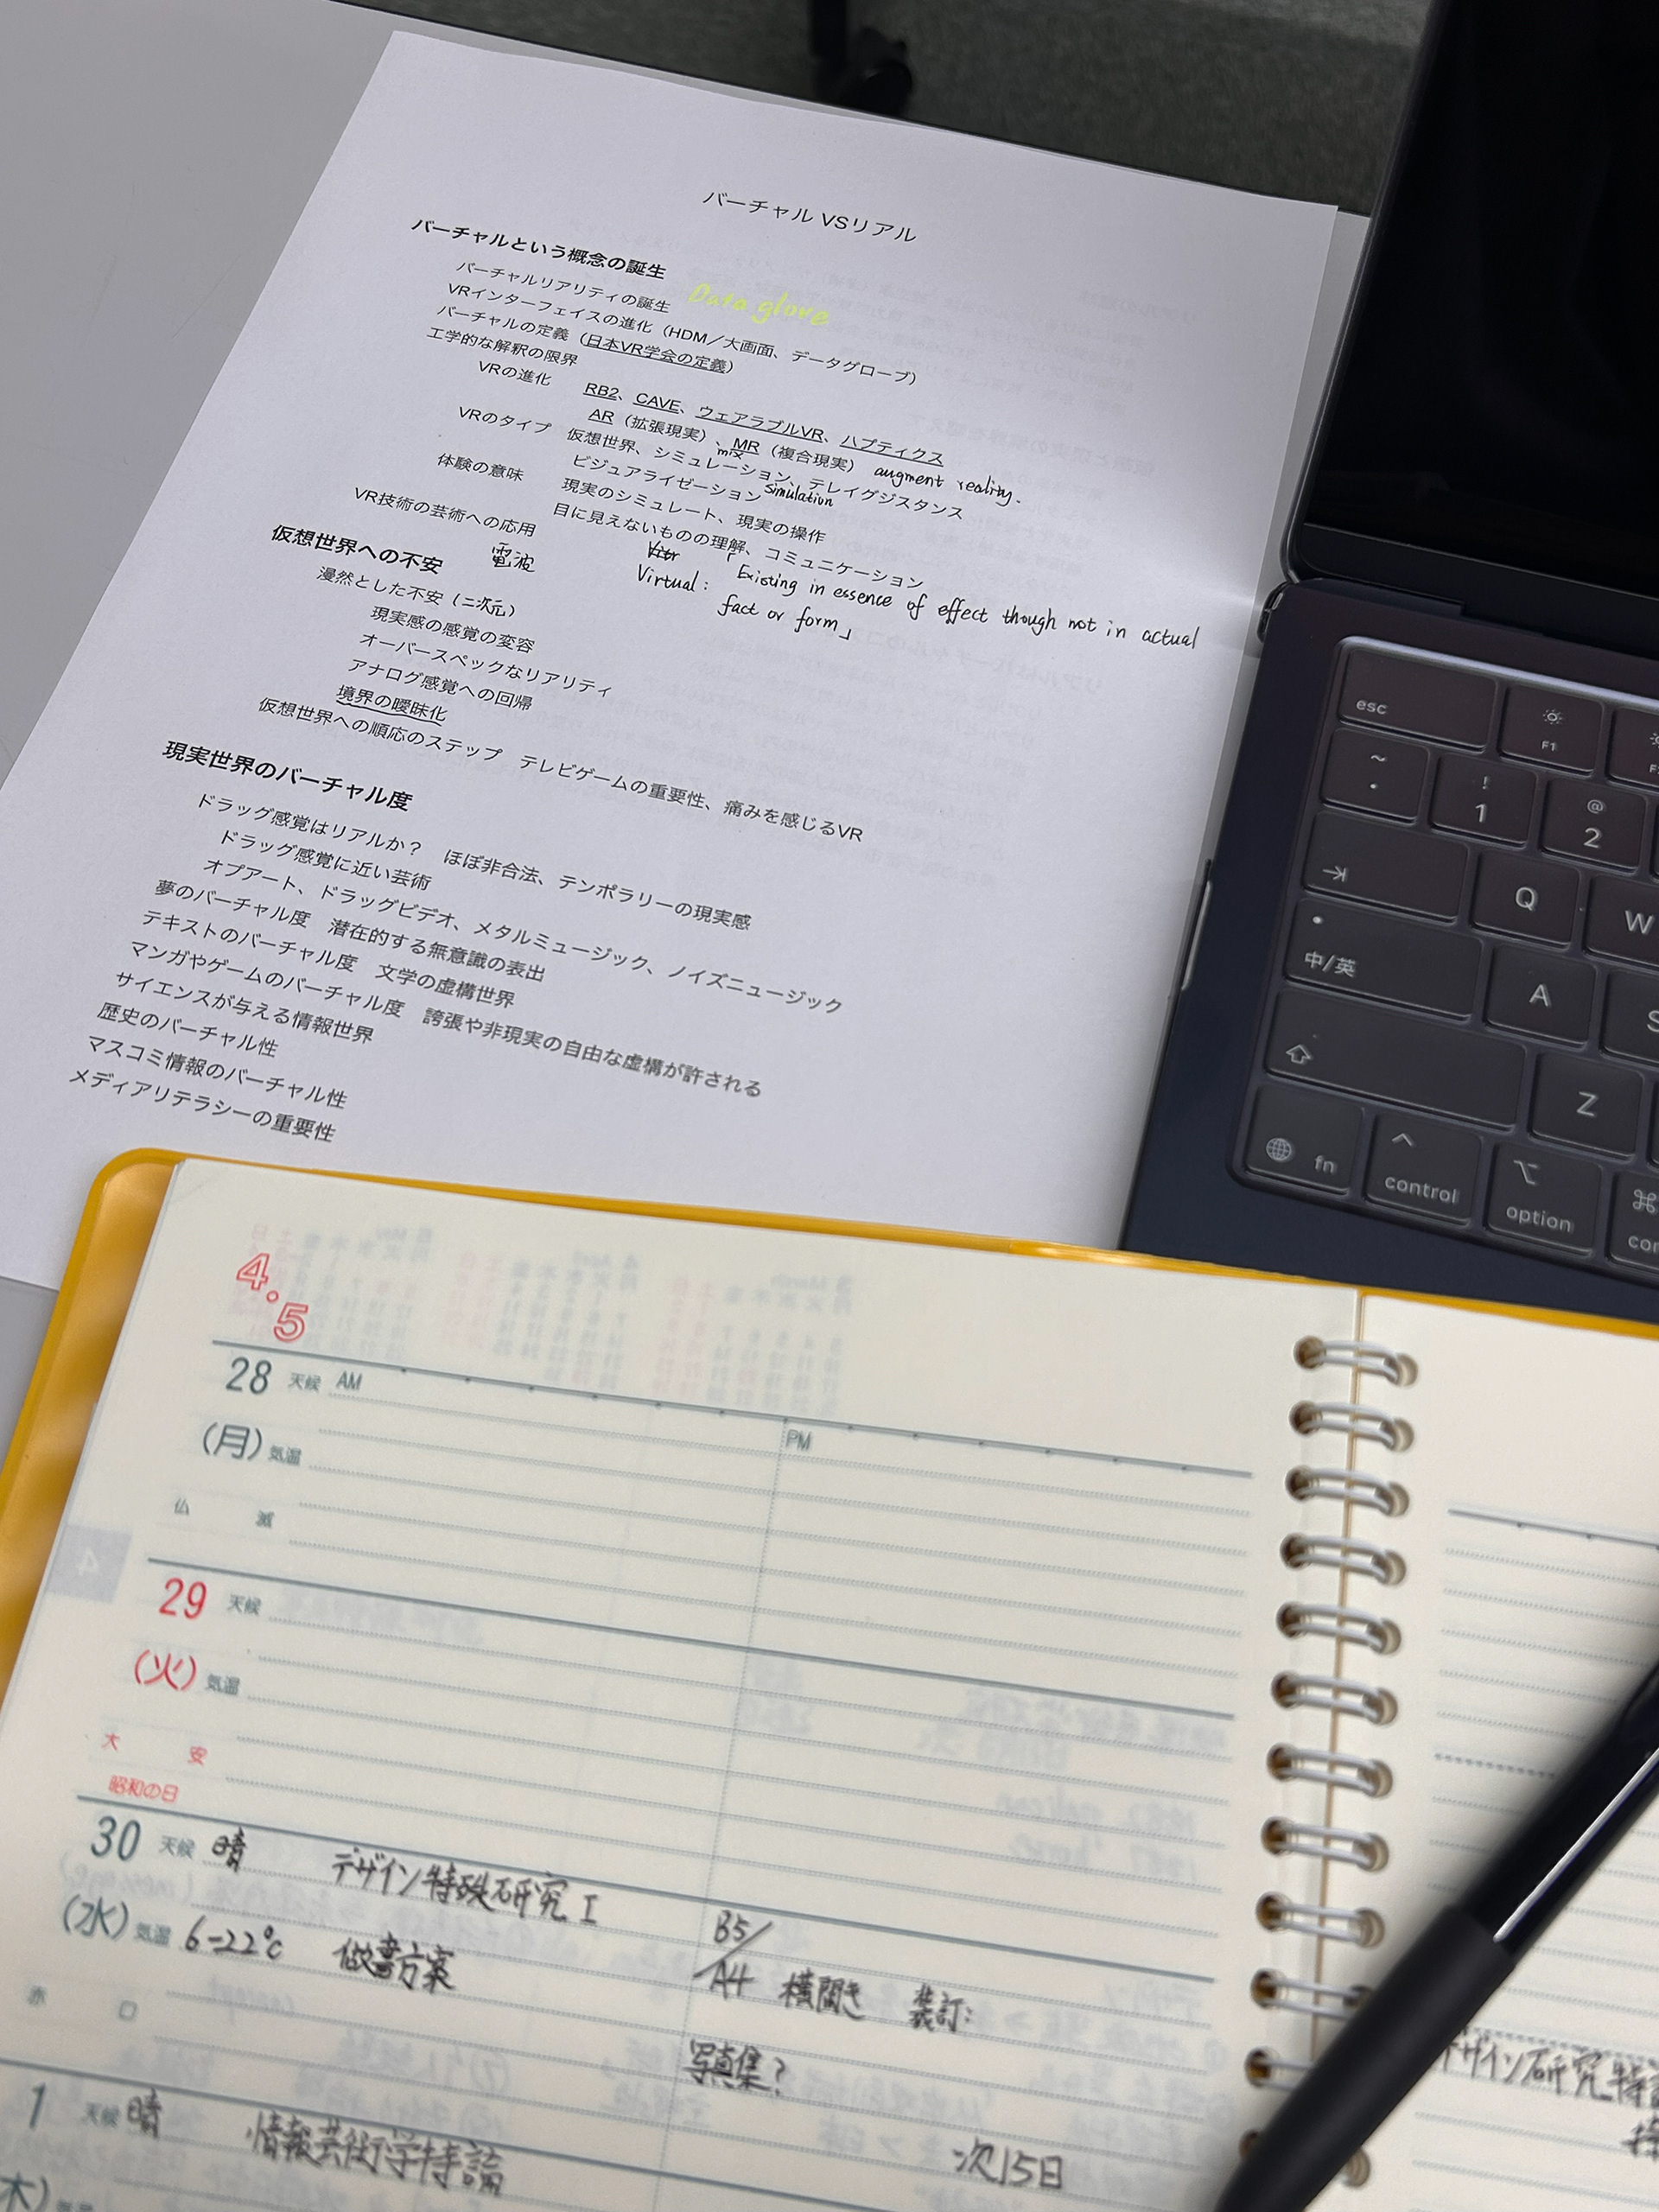 バーチャル VSリアル
バーチャルという概念の誕生
バーチャルリアリティの誕生 Data glove
VRインターフェイスの進化（HDM／大画面、データグローブ）
バーチャルの定義（日本VR学会の定義）
工学的な解釈の限界
VRの進化 RB2、CAVE、ウェアラブルVR、ハプティクス
AR（拡張現実）、MR（複合現実） augment reality.
mix
VRのタイプ 仮想世界、シミュレーション、テレイグジスタンス
ビジュアライゼーション simulation
体験の意味 現実のシミュレート、現実の操作
目に見えないものの理解、コミュニケーション
VR技術の芸術への応用
電波
Virtual:「Existing in essence of effect though not in actual
fact or form」
仮想世界への不安
漫然とした不安（二次元）
現実感の感覚の変容
オーバースペックなリアリティ
アナログ感覚への回帰
境界の曖昧化
仮想世界への順応のステップ テレビゲームの重要性、痛みを感じるVR
現実世界のバーチャル度
ドラッグ感覚はリアルか？ ほぼ非合法、テンポラリーの現実感
ドラッグ感覚に近い芸術
オプアート、ドラッグビデオ、メタルミュージック、ノイズニュージック
夢のバーチャル度 潜在的する無意識の表出
テキストのバーチャル度 文学の虚構世界
マンガやゲームのバーチャル度 誇張や非現実の自由な虚構が許される
サイエンスが与える情報世界
歴史のバーチャル性
マスコミ情報のバーチャル性
メディアリテラシーの重要性
esc
F1
~
!
1
@
2
Q
W
中/英
A
S
Z
fn
control
option
4.5
28 天候 AM
PM
(月) 気温
仏 滅
4
29 天候
(火) 気温
大 安
昭和の日
30 天候 晴 デザイン特殊研究 I
(水) 気温 6-22℃ 做書方案
B5/
A4 横開き 装訂:
赤 口
写真集?
1 天候 晴 情報芸術学特論
次15日
(木) 気温
デザイン研究特